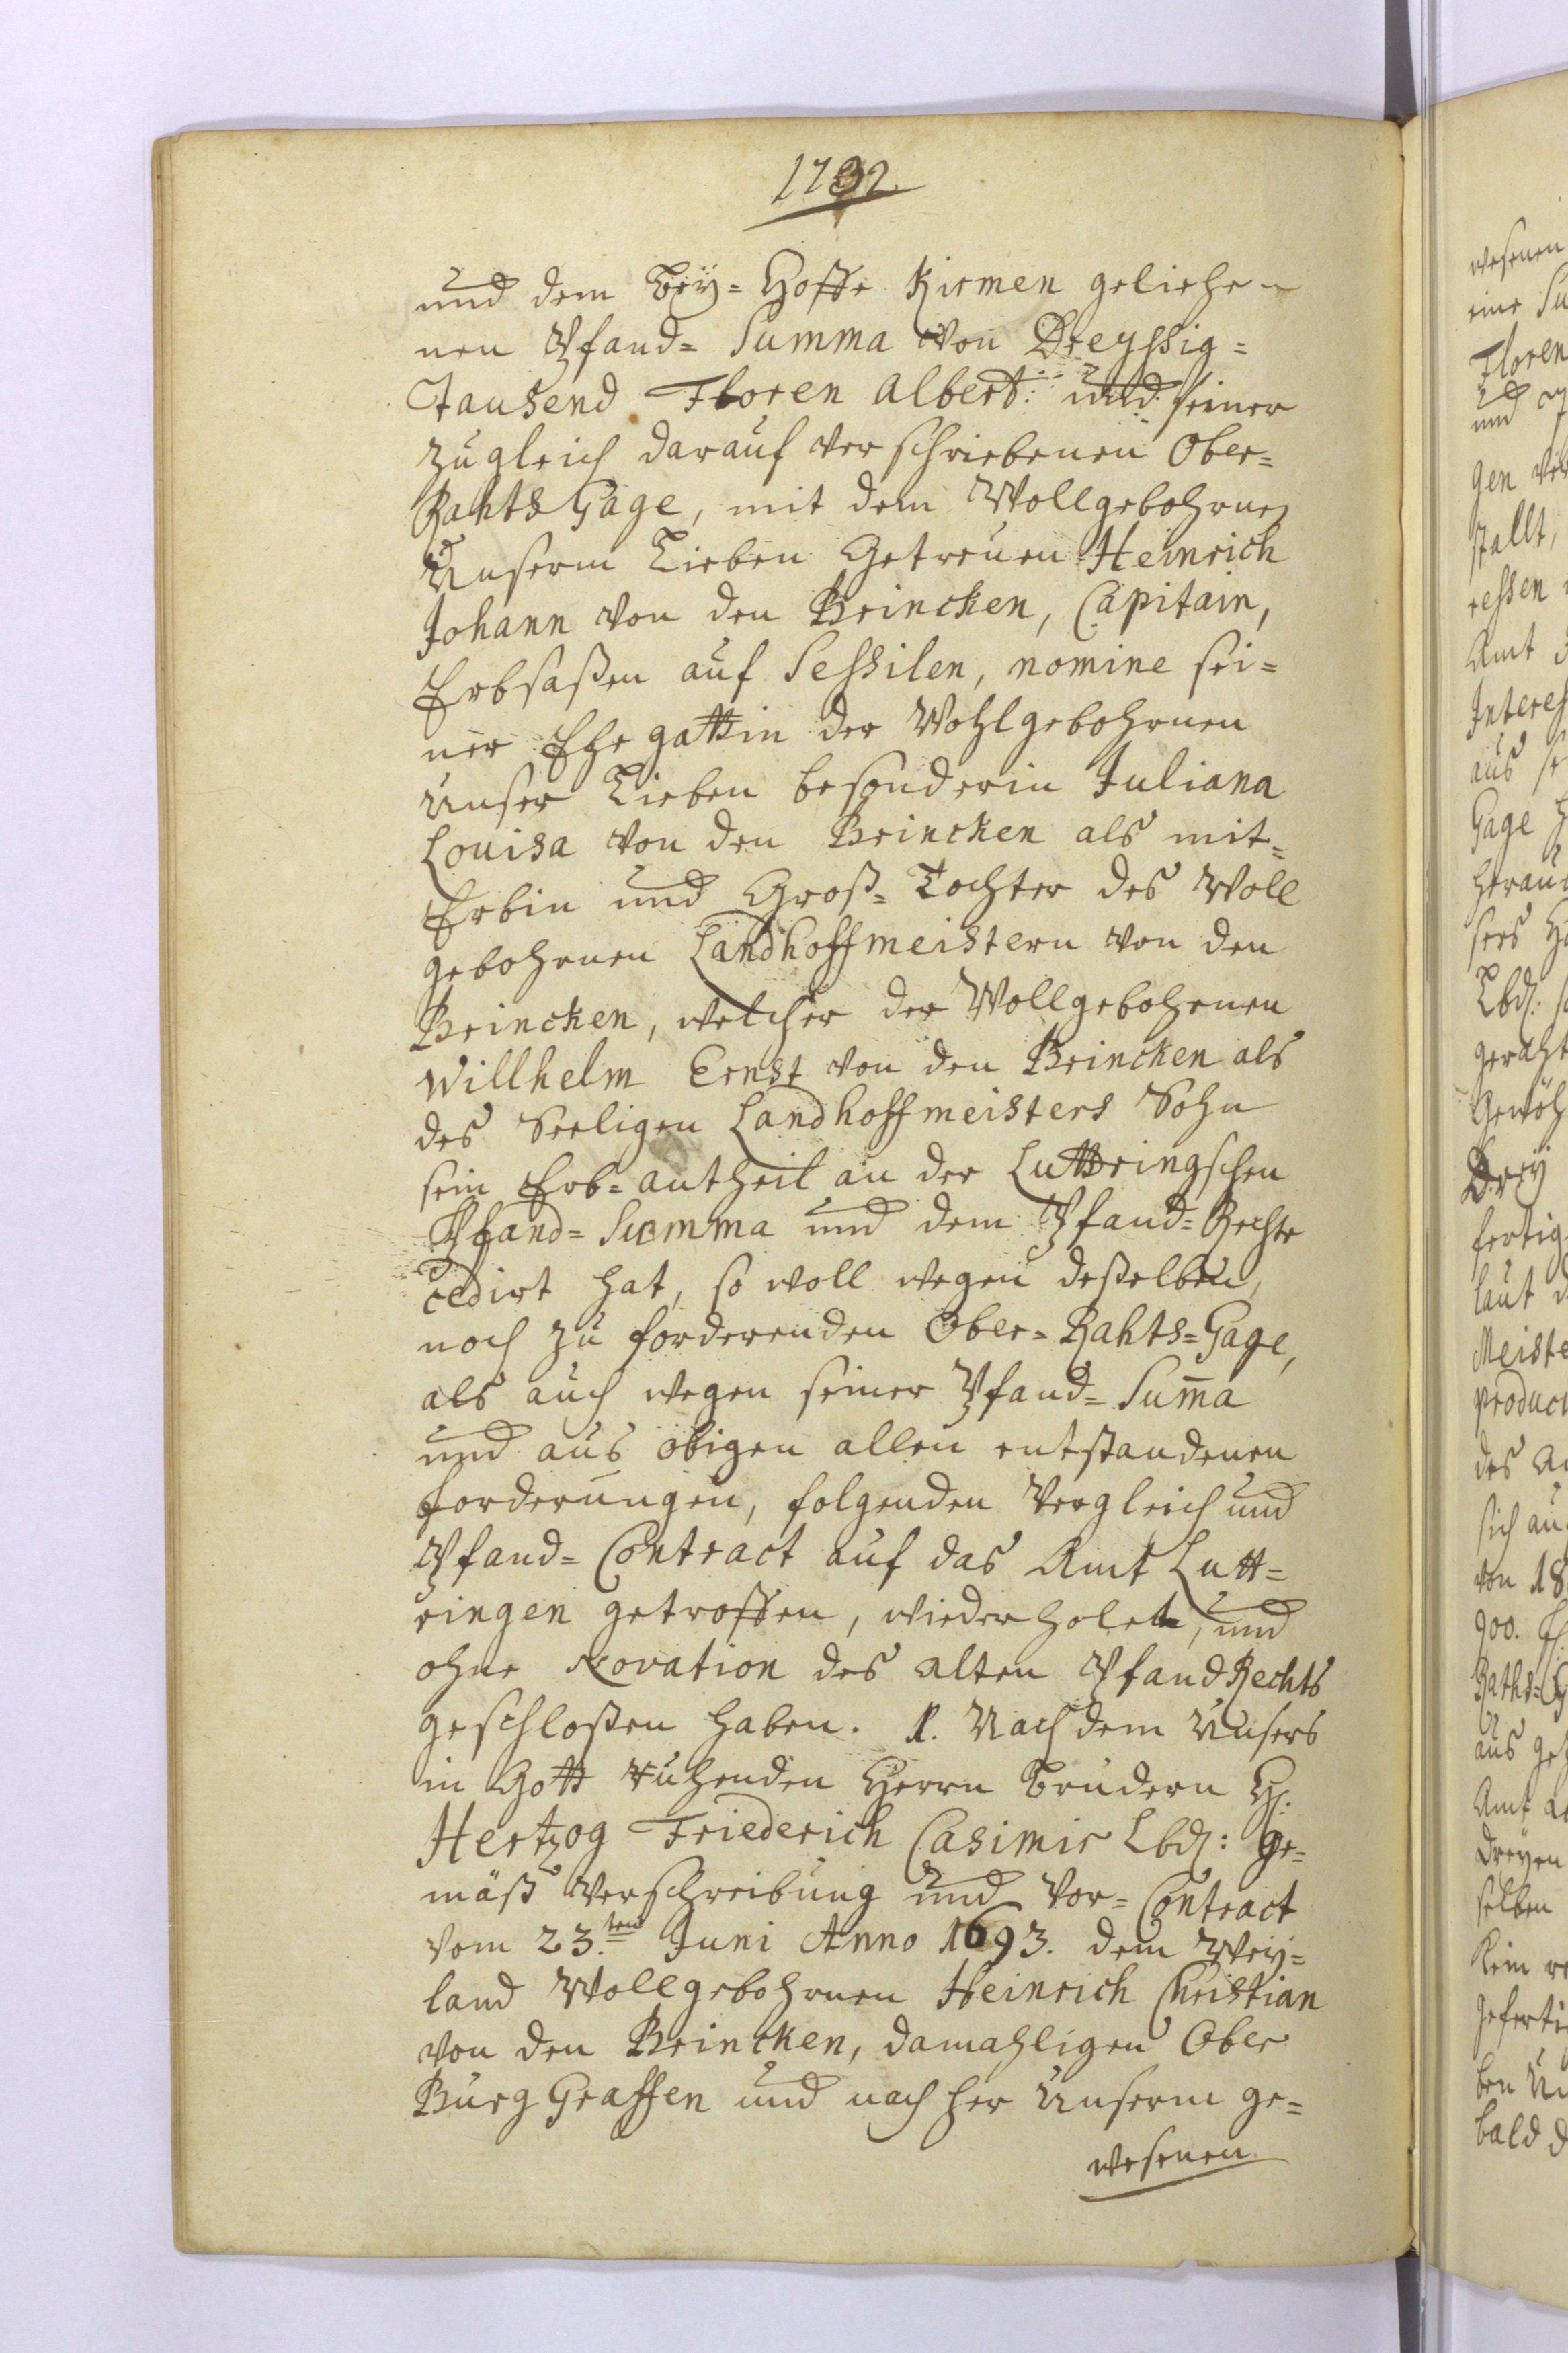 1732.
und dem Bey=Hoffe Kirmen geliehe-
nen Pfand=Summa von Dreyssig=
Tausend Floren Albert: und seiner
zugleich darauf verschriebenen Ober=
Rahts Gage, mit dem Wollgebohrnen
Unserm Lieben Getreuen Heinrich
Johann von den Brincken, Capitain,
Erbsaßen auf Sessilen, nomine sei=
ner Ehegattin der Wohlgebohrnen
Unser Lieben besonderin Juliana
Louisa von den Brincken als mit=
Erbin und Groß=Tochter des Woll
gebohrnen Landhoffmeistern von den
Brincken, welcher der Wollgebohrnen
Willhelm Ernst von den Brincken als
des Seeligen Landhoffmeisters Sohn
sein Erb=antheil an der Luttringschen
Pfand=Summa und dem Pfand=Rechte
cedirt hat, so woll wegen deßelben,
noch zu forderenden Ober=Rahts=Gage,
als auch wegen seiner Pfand=Sum̄a
und aus obigen allen entstandenen
forderungen, folgenden Vergleich und
Pfand=Contract auf das Amt Lutt=
ringen getroffen, wiederholet, und
ohne Novation des alten PfandRechts
geschloßen haben. 1. Nachdem Unsers
in Gott ruhenden Herrn Brudern H:
Hertzog Friederich Casimir Lbd: ge=
mäß Verschreibung und Vor=Contract
vom 23.ten Juni Anno 1693. dem Wey=
land Wollgebohrnen Heinrich Christian
von den Brincken, damahligen Ober
Burg Graffen und nach her Unserm ge=
wesenen
wesenen
eine Su
Floren
und
gen
stallt,
ressen
Amt
Interes
aus se
Gage
heraus
sers
Lbd:
geraht
Gewöh
Drey
fertig
laut d
Meiste
produc
des
sich au
von 18
900.
Rahts=G
aus
Amt
dreyen
selben
kein
geferti
ben
bald d